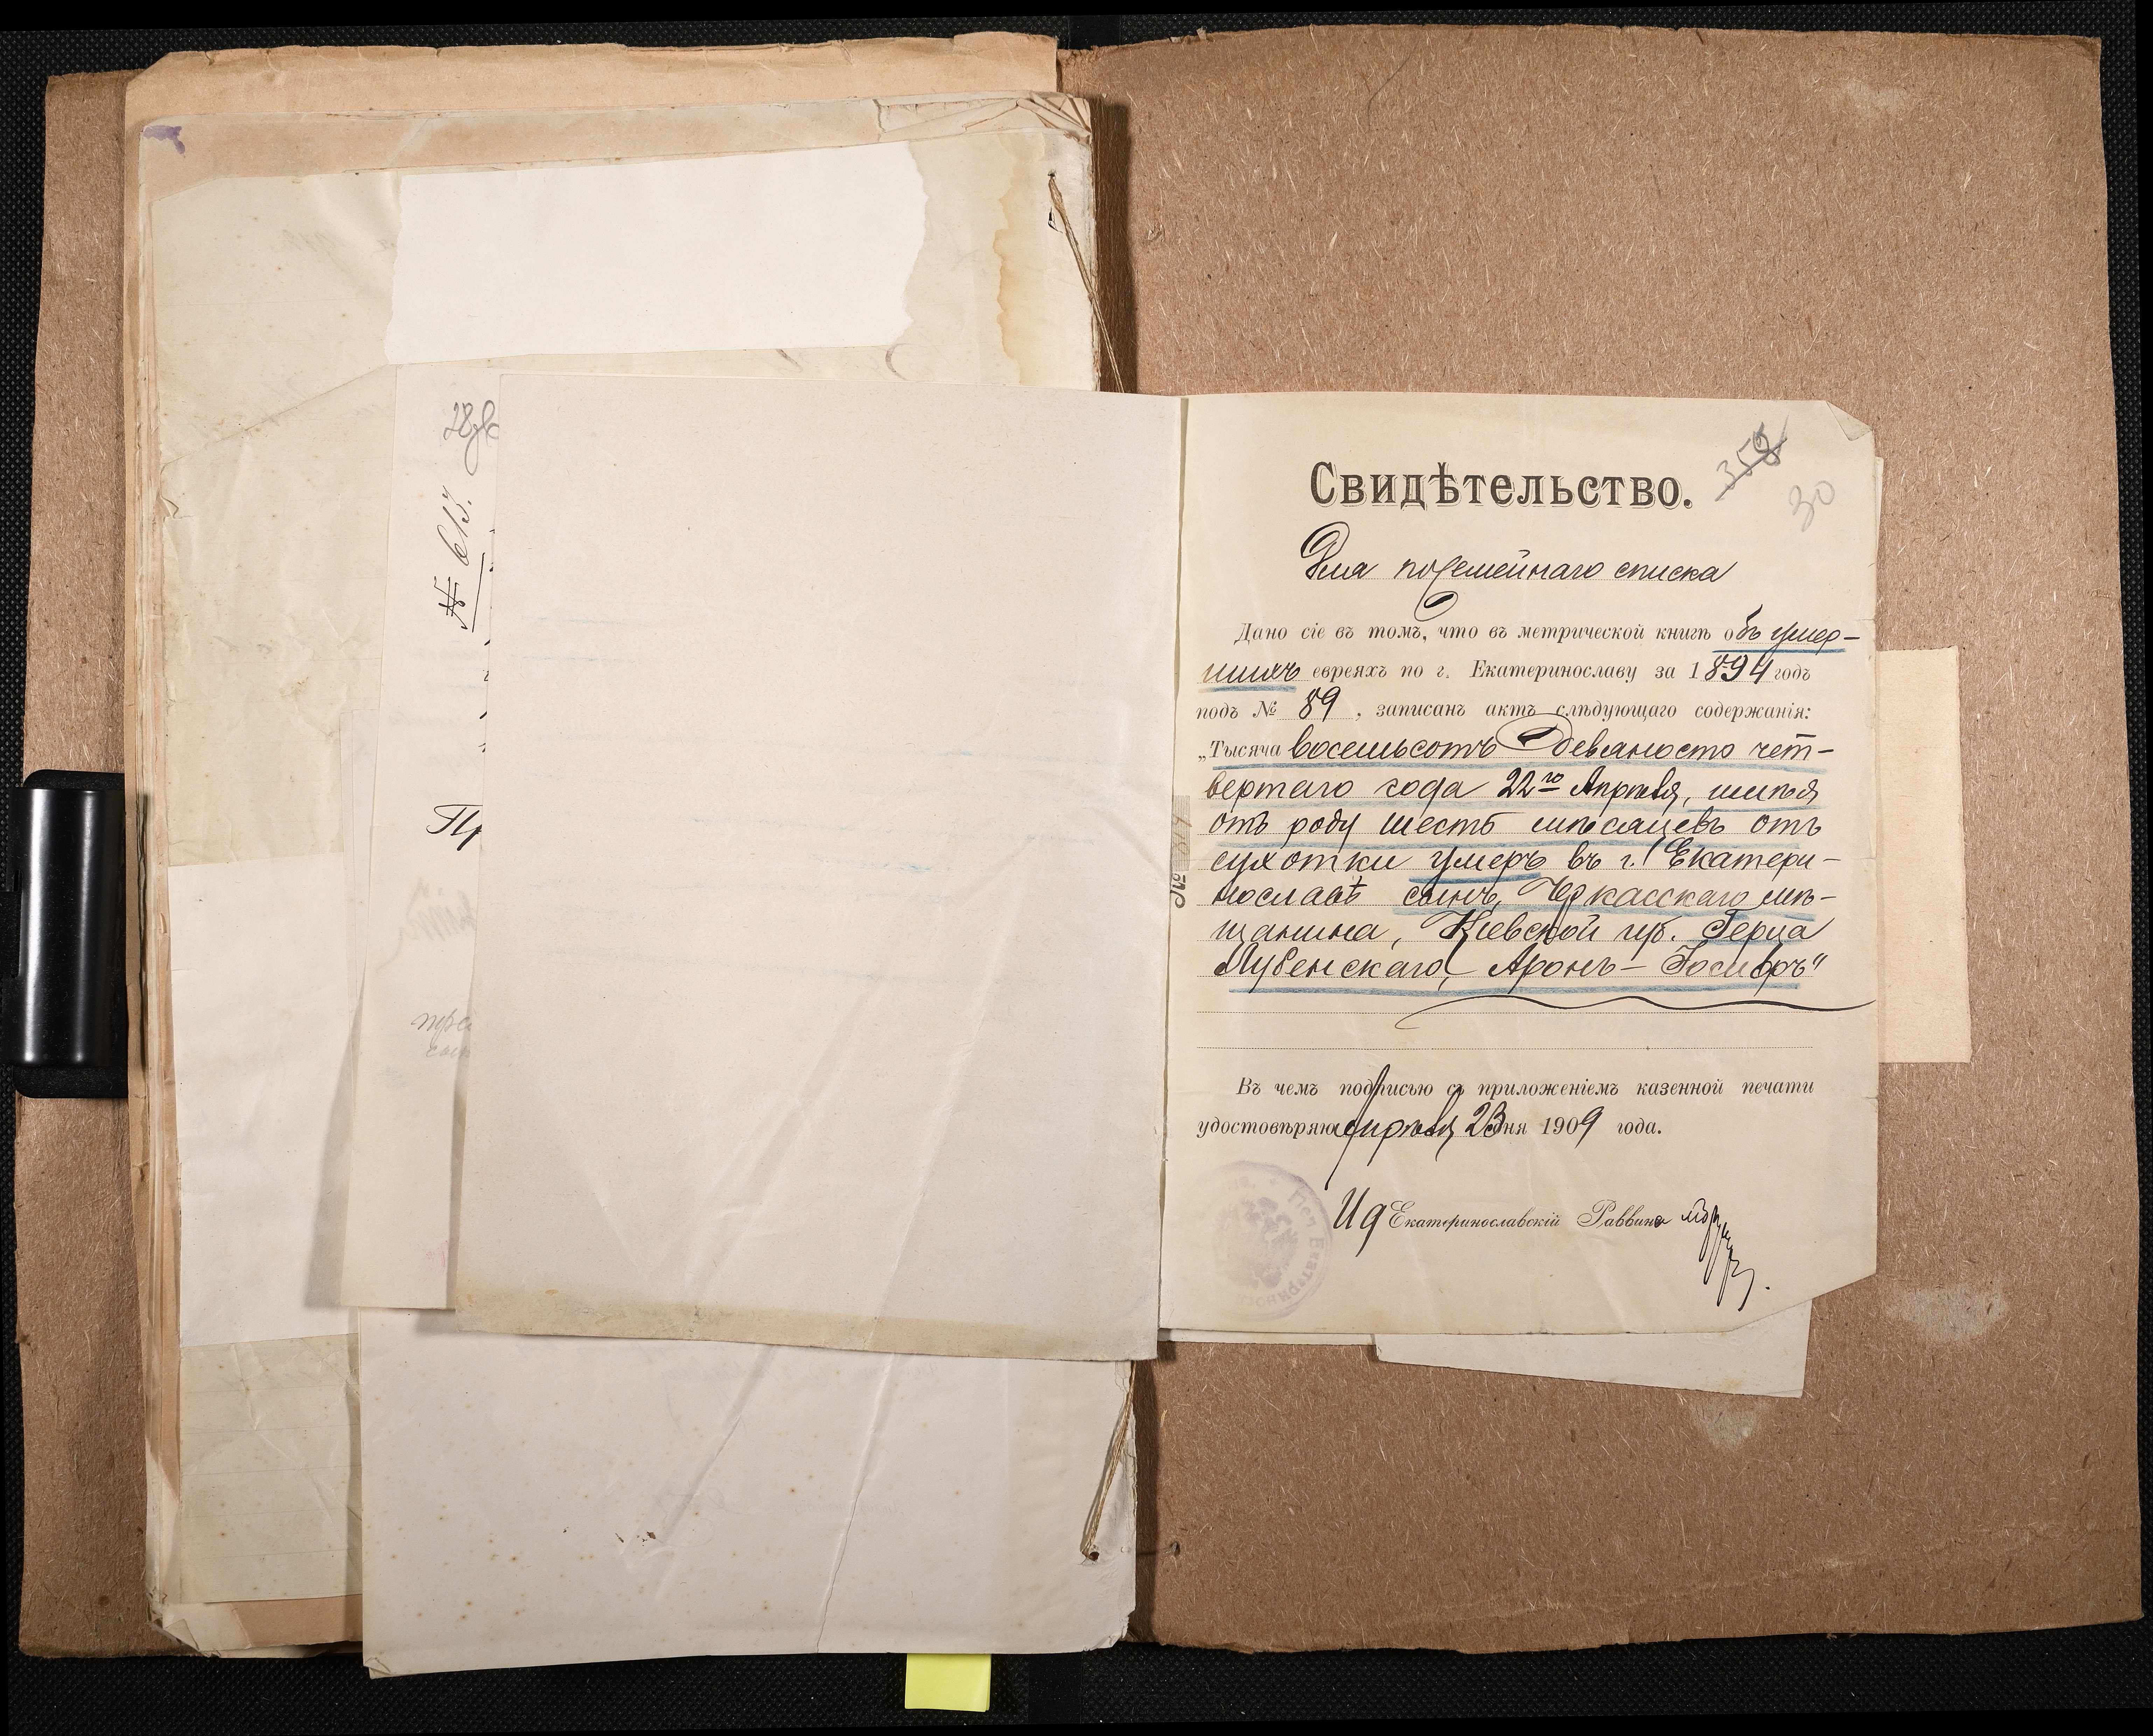 28
№ 613.
Пр
358
30
Свидѣтельство.
Для посемейнаго списка
Дано сіе въ томъ, что въ метрической книгѣ объ умер-
шихъ евреяхъ по г. Екатеринославу за 1894 годъ
подъ № 89, записанъ актъ слѣдующаго содержанія:
„Тысяча восемьсотъ девяносто чет-
вертаго года 22го Апрѣля, имѣя
отъ роду шесть мѣсяцевъ отъ
сухотки умеръ въ г. Екатери-
нославѣ сынъ, Черкасскаго мѣ-
щанина, Кіевской губ. Герца
Лубенскаго, Аронъ-Іосифъ"
Въ чемъ подписью съ приложеніемъ казенной печати
удостовѣряю Апрѣля 23 дня 1909 года.
Ид Екатеринославскій Раввина